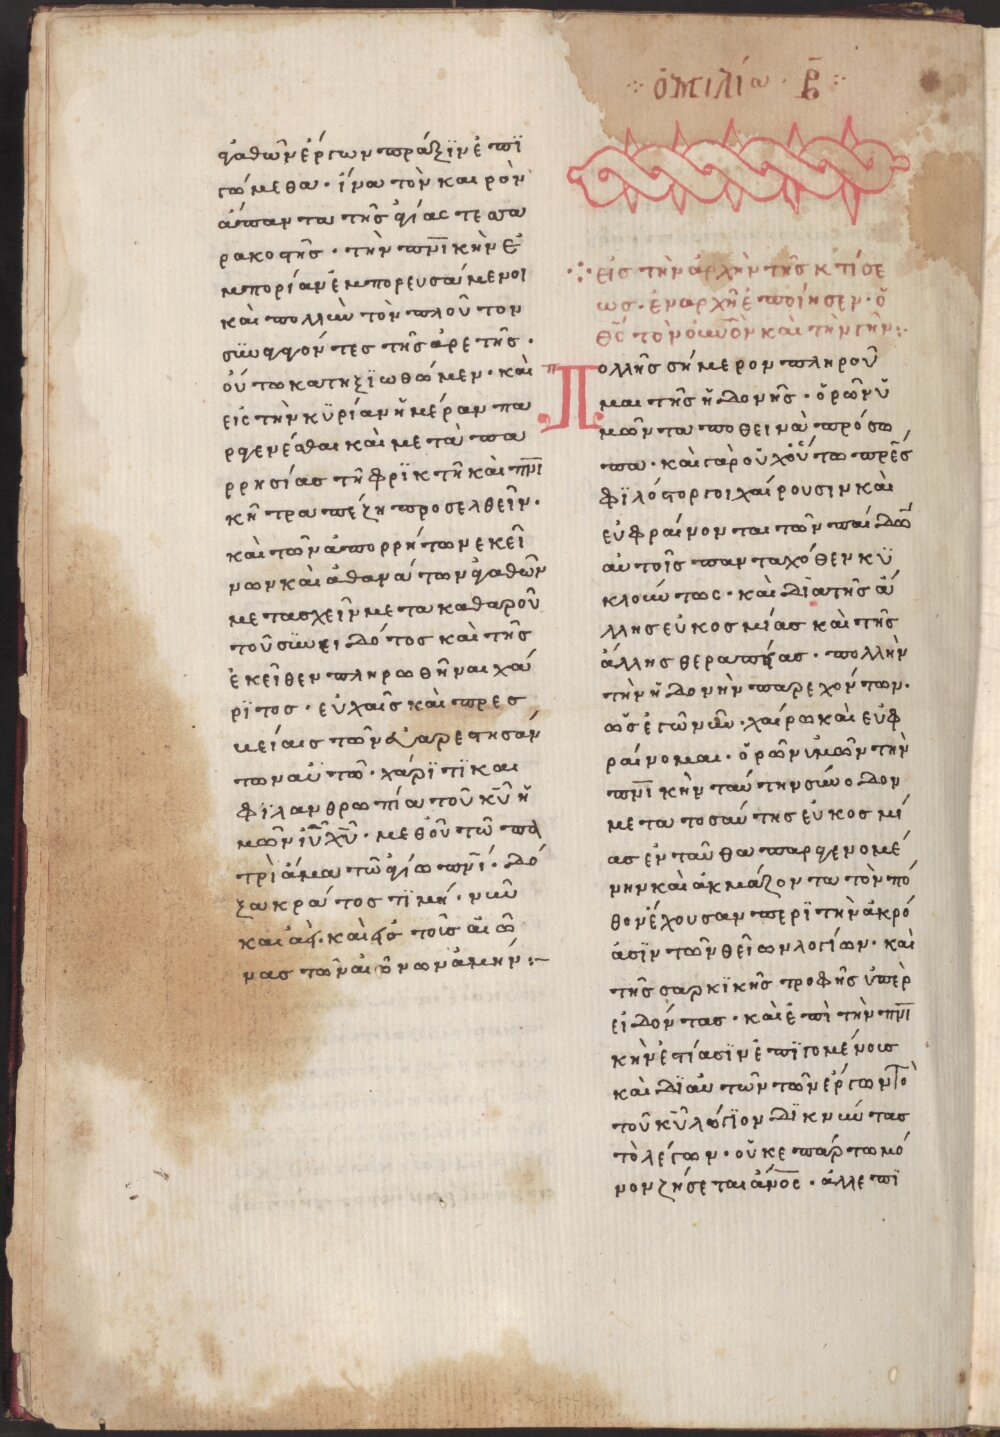 ἀγαθῶν ἔργων πράξιν ἐπϊ
γώμεθα · ἵνα τὸν καιρὸν
ἅπαντα τῆς ἁγίας τεσσα
ρακοστῆς · τὴν πνικὴν ἐ
μπορίαν ἐμπορευσάμενοι
καὶ πολλὺν τὸν πλοῦτον
συναγαγόντες τῆς ἀρετῆς ·
οὕτω καταξϊωθῶμεν · καὶ
εἰς τὴν κϋρίαν ἡμέραν πα
ραγενέσθαι καὶ μετὰ πα
ρρησίας τῆ φρϊκτῆ καὶ πνι
κῆ τραπέζη προσελθεῖν ·
καὶ τῶν ἀπορρήτων εκεῖ
νων καὶ ἀθανάτων ἀγαθῶν
μετασχεῖν μετα καθαροῦ
τοῦ συνειδότος καὶ τῆς
ἐκεῖθεν πληρωθῆναι χά
ρϊτος · εὐχαῖς καὶ πρεσ
βείαις τῶν εὐαρεστησάν
των αὐτῶ · χάρϊτϊ και
φϊλανθρωπία τοῦ κῦ ἡ
μῶν ἰῦ χῦ · μεθοῦ τῶ πα
τρὶ ἅμα τῶ ἁγίω πνί · δό
ξα κράτος τϊμή · νῦν
καὶ ἀεὶ · καὶ εἰς τοὺς αἰῶ
νας τῶν αἰώνων ἀμήν :–
ὁμιλία · β
εἰς τὴν ἀρχὴν τῆς κτίσε
ως · ἐν ἀρχῆ ἐποίησεν · ὁ
θς τὸν οὐνὸν καὶ τὴν γῆν :·
Πολλῆς σήμερον πληροῦ
μαι τῆς ἡδονῆς · ὁρῶν ὑ
μῶν τα ποθεινὰ πρόσω
πα · καὶ γὰρ οὐχ οὕτω πρες
φϊλόστοργοι χαίρουσιν καὶ
εὐφραίνονται τῶν παίδω
αὐτοῖς πανταχόθεν κϋ
κλούντων · καὶ δϊα τῆς ἄ
λλης εὐκοσμίας καὶ τῆς
ἄλλης θεραπείας · πολλὴν
τὴν ἡδονὴν παρεχόντων ·
ὡς ἐγὼ νῦν · χαίρω καὶ εὐφ
ραίνομαι · ὁρῶν ὑμῶν τὴν
πνικὴν ταύτην σύνοδον
μετα τοσαύτης εὐκοσμί
ας ἐνταῦθα παραγενομέ
νην καὶ ἀκμάζοντα τὸν πό
θον ἔχουσαν περϊ τὴν ἀκρό
ασϊν τῶν θείων λογίων · καὶ
τῆς σαρκϊκῆς τροφῆς ὑπερ
ειδόντας · καὶ ἐπὶ τὴν πνι
κὴν ἑστίασϊν ἐπϊγομένοις
καὶ δϊ αὐτῶν τῶν ἔργων τὸ
τοῦ κῦ λόγϊον δϊκνύντας
τὸ λέγων · οὐκ επάρτω μό
νον ζήσεται ἄνος · ἀλλεπϊ